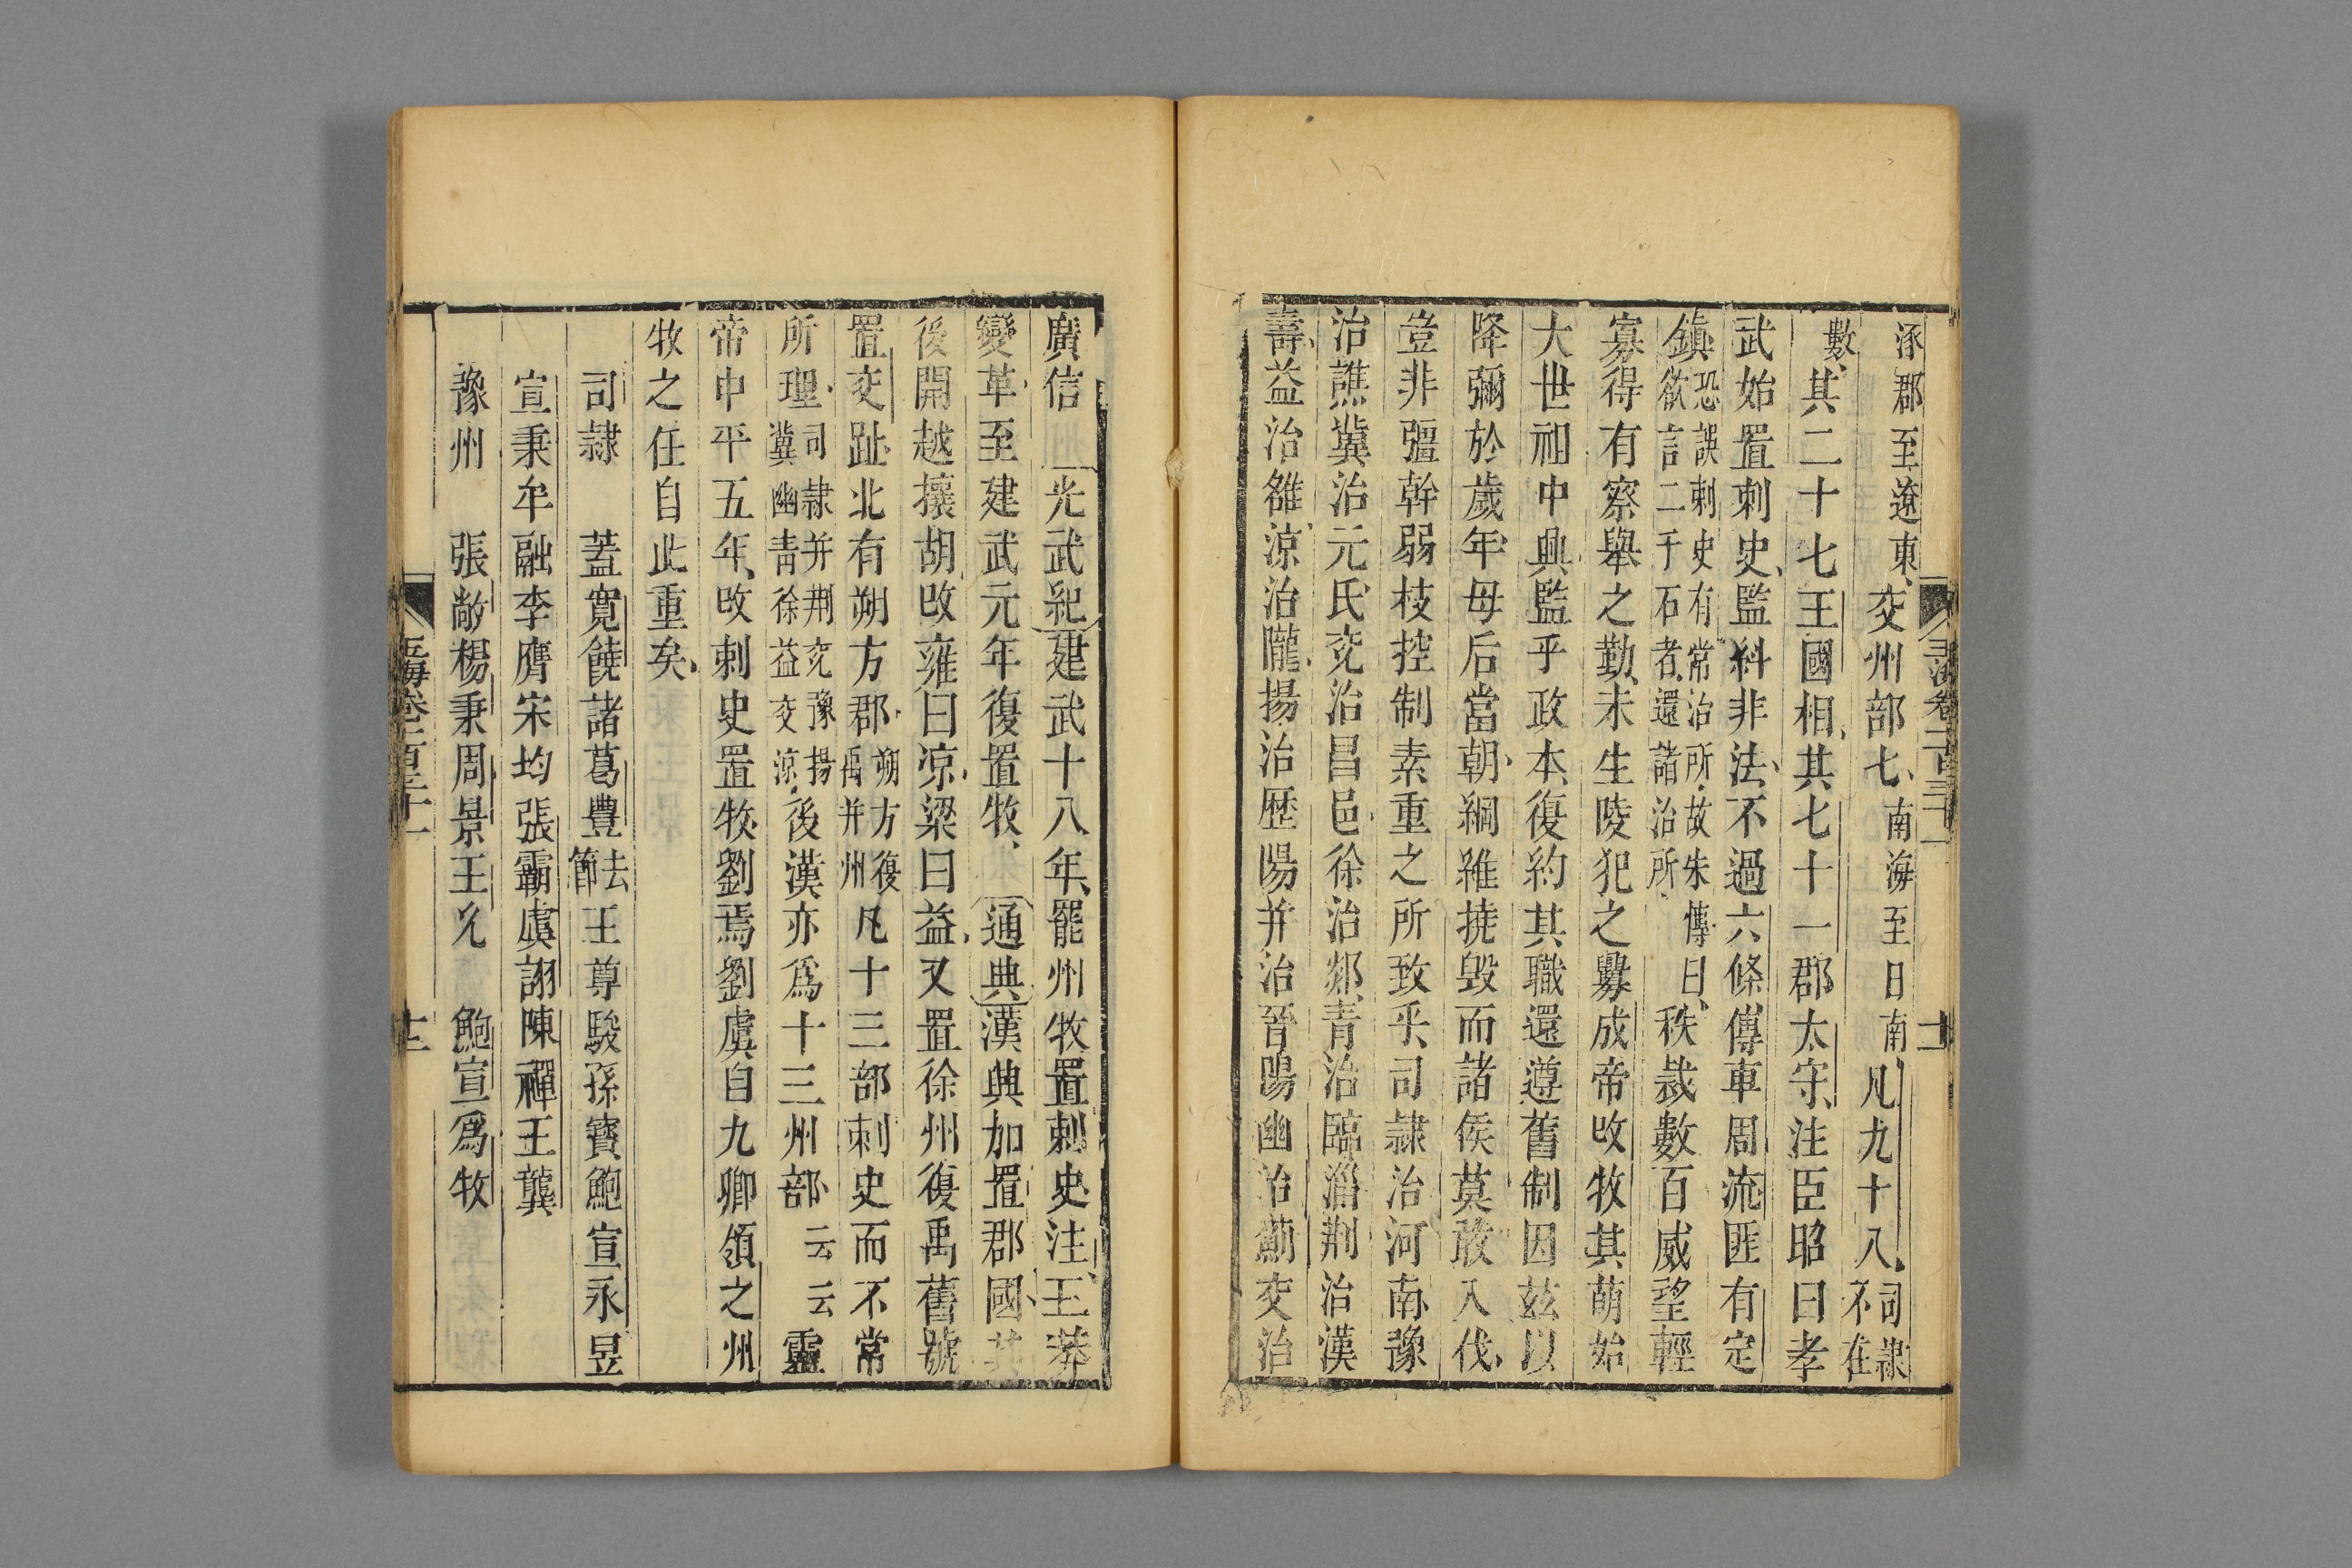 涿郡至遼東交州部七南海至日南凡九十八司隸不在
數其二十七王國相其七十一郡太守注臣昭曰孝
武始置刺史監糾非法不過六條傳車周流匪有定
鎮恐誤刺史有常治所故朱傳曰欲言二千石者還諸治所秩裁數百威望輕
寡得有察舉之勤未生陵犯之釁成帝改牧其萌始
大世祖中興監乎政本復約其職還遵舊制因茲以
降彌於歲年母后當朝綱維撓毀而諸侯莫敢入伐
豈非彊幹弱枝控制素重之所致乎司隸治河南豫
治譙冀治元氏兗治昌邑徐治郯青治臨淄荆治漢
壽益治雒涼治隴揚治歷陽并治晉陽幽治薊交治
玉海卷一百三十一
十一
廣信光武紀建武十八年罷州牧置刺史注王莽
變革至建武元年復置牧通典漢典加置郡國其
後開越攘胡改雍曰凉梁曰益又置徐州復禹舊號
置交趾北有朔方郡朔方復禹并州凡十三部刺史而不常
所理司隸并荆兗豫揚冀幽青徐益交涼後漢亦爲十三州部云云靈
帝中平五年改刺史置牧劉焉劉虞自九卿領之州
牧之任自此重矣
司隸　蓋寬饒諸葛豊去節王尊駿孫寶鮑宣永昱
宣秉牟融李膺宋均張霸虞詡陳禪王龔
豫州　張敞楊秉周景王允　鮑宣爲牧
玉海卷一百三十一
十二